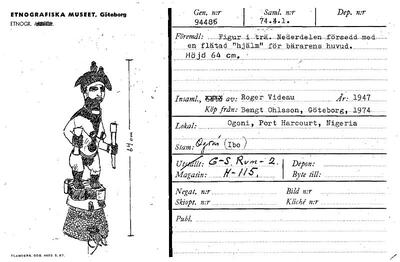 ETNOGRAFISKA MUSEET, Göteborg
ETNOGR.
64 cm
Gen. n:r
94486
Saml. n:r
74.4.1.
Dep. n:r
Föremål: Figur i trä. Nederdelen försedd med
en flätad "hjälm" för bärarens huvud.
Höjd 64 cm.
Insaml. av: Roger Videau År: 1947
Köp från: Bengt Ohlsson, Göteborg, 1974
Lokal: Ogoni, Port Harcourt, Nigeria
Stam: Ogoni (Ibo)
Utställt: G-S. Rum-2. Depon:
Magasin: H-115. Byte till:
Negat. n:r Bild n:r
Skiopt. n:r Kliché n:r
Publ.